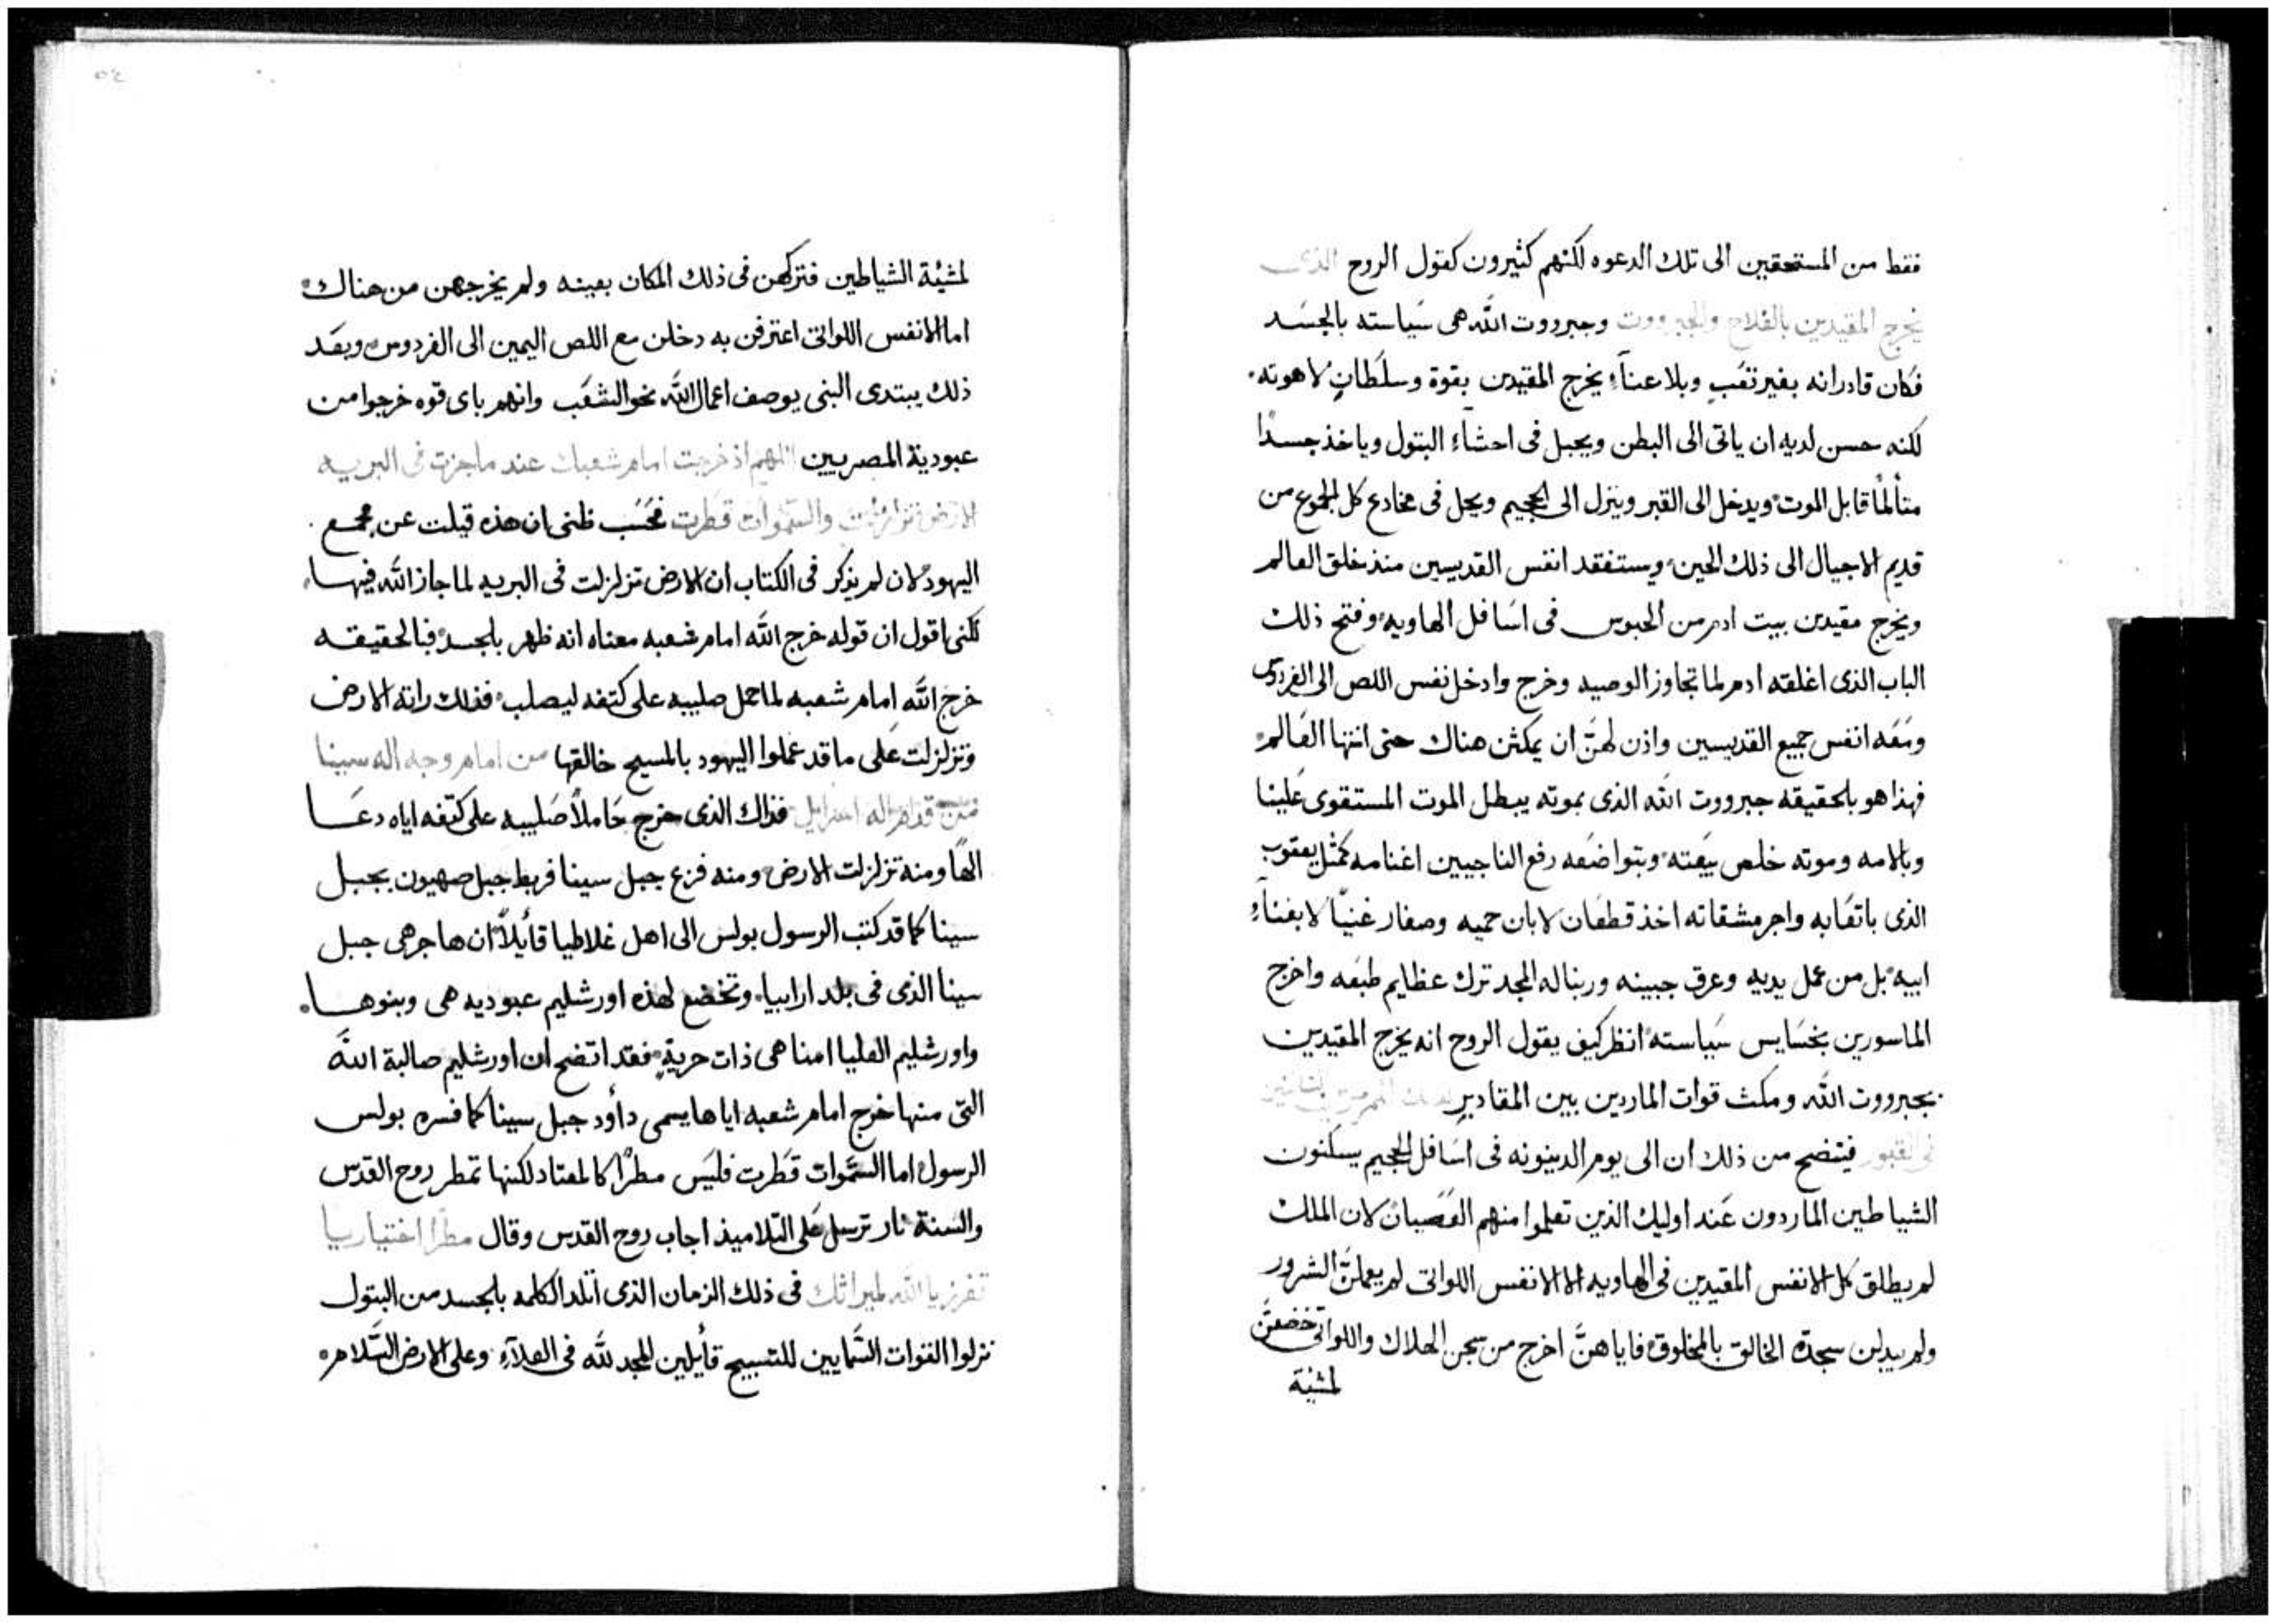 فقط من المستحقين الى تلك الدعوه لكنهم كثيرون كقول الروح الذى
يخرج المقيدين بالفلاح والجبرووت وجبرووت الله هى سياسته بالجسد
فكان قادرا انه بغير تعب وبلا عناء يخرج المقيدين بقوة وسلطان لاهوته.
لكنه حسن لديه ان ياتى الى البطن ويحبل فى احشاء البتول وياخذ جسدًا
متألمًا قابل الموت ويدخل الى القبر وينزل الى الجحيم ويحل فى مخادع كل الجموع من
قديم الاجيال الى ذلك الحين ويستفقد انفس القديسين منذ خلق العالم
ويخرج مقيدين بيت ادم من الحبوس فى اسافل الهاويه وفتح ذلك
الباب الذى اغلقه ادم لما تجاوز الوصيه وخرج وادخل نفس اللص الى الفردوس
ومعه انفس جميع القديسين واذن لهنَّ ان يمكثن هناك حتى انتها العالم
فهذا هو بالحقيقه جبرووت الله الذى بموته يبطل الموت المستقوى علينا
وبالامه وموته خلص بيعته وبتواضعه رفع الناجيين اغنامه كمثل يعقوب
الذى باتعابه واجر مشقاته اخذ قطعان لابان حميه وصار غنيًا لا بغناء
ابيه بل من عمل يديه وعرق جبينه وربنا له المجد ترك عظايم طبعه واخرج
الماسورين بخسايس سياسته انظر كيف يقول الروح انه يخرج المقيدين
بجبرووت الله ومكث قوات الماردين بين المقادير
فى القبور فيتضح من ذلك ان الى يوم الدينونه فى اسافل الجحيم يسكنون
الشياطين الماردون عند اوليك الذين تعلموا منهم العصيان لان الملك
لم يطلق كل الانفس المقيدين فى الهاويه الا الانفس اللواتى لم يعملنَّ الشرور
ولم يبدلن سجدة الخالق بالمخلوق فاياهنَّ اخرج من سجن الهلاك واللواتى تخضعنَّ
لمشئة
لمشيئة الشياطين فتركهن فى ذلك المكان بعينه ولم يخرجهن من هناك
اما الانفس اللواتى اعترفن به دخلن مع اللص اليمين الى الفردوس وبعد
ذلك يبتدى النبى يوصف اعمال الله نحو الشعب وانهم باى قوه خرجوا من
عبودية المصريين اللهم اذ خرجت امام شعبك عند ما جزت فى البريه
الارض تزلزلت والسموات قطرت فحسب ظنى ان هذه قيلت عن مجمع
اليهود لان لم يذكر فى الكتاب ان الارض تزلزلت فى البريه لما جاز الله فيها
لكنى اقول ان قوله خرج الله امام شعبه معناه انه ظهر بالجسد فبالحقيقه
خرج الله امام شعبه لما حمل صليبه على كتفه ليصلب فذلك راته الارض
وتزلزلت على ما قد عملوا اليهود بالمسيح خالقها من امام وجه اله سينا
من قدام اله اسرايل فذاك الذى خرج حاملاً صليبه على كتفه اياه دعا
الهًا ومنه تزلزلت الارض ومنه فزع جبل سينا فربط جبل صهيون بجبل
سينا كما قد كتب الرسول بولس الى اهل غلاطيا قأيلاً ان هاجر هى جبل
سينا الذى فى بلد ارابيا وتخضع لهذه اورشليم عبوديه هى وبنوها.
واورشليم العليا امنا هى ذات حرية فقد اتضح ان اورشليم صالبة الله
التى منها خرج امام شعبه اياها يسمى دأود جبل سينا كما فسره بولس
الرسول اما السموات قطرت فليس مطرًا كالمعتاد لكنها تمطر روح القدس
والسنة نار ترسل على التلاميذ اجاب روح القدس وقال مطرًا اختياريا
تفرز يا الله لميراثك فى ذلك الزمان الذى اتلد الكلمه بالجسد من البتول
نزلوا القوات السمايين للتسبيح قأيلين المجد لله فى العلاء وعلى الارض السلام